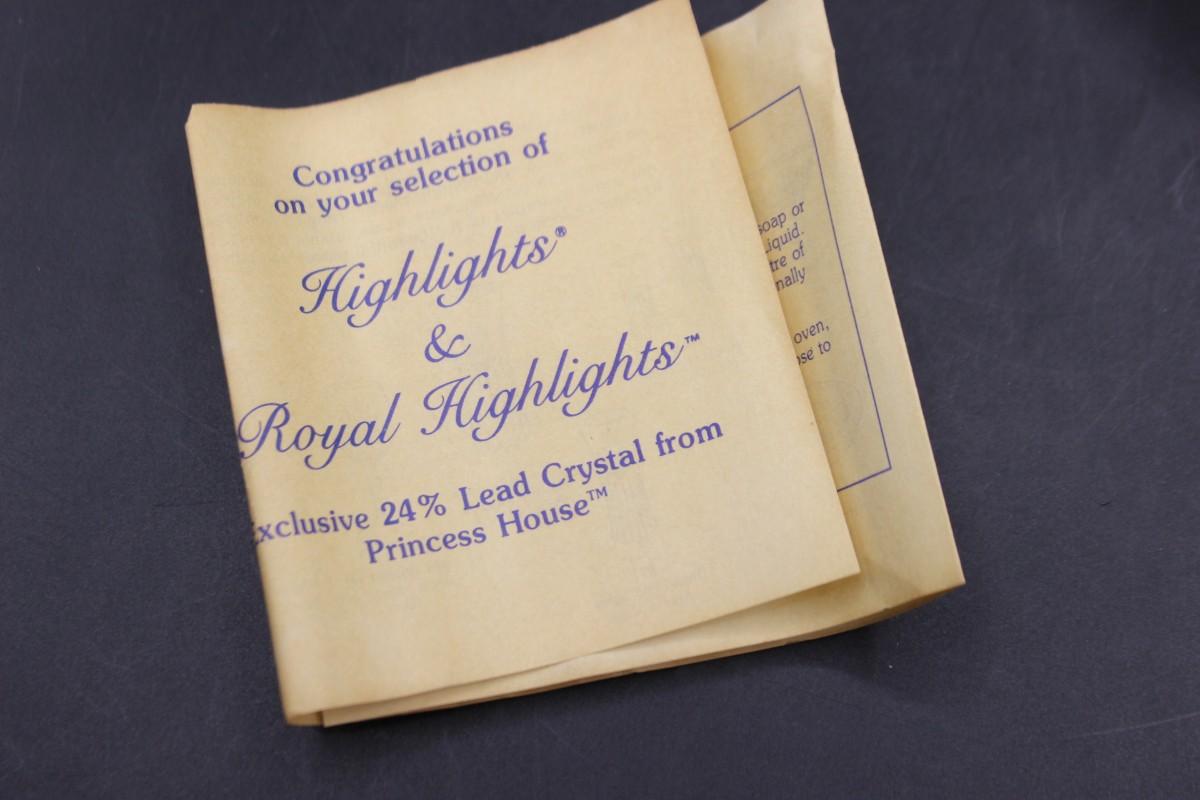 Congratulations
on your selection of
Highlights®
&
Royal Highlights™
Exclusive 24% Lead Crystal from
Princess House™
soap or
Liquid.
of
oven,
to